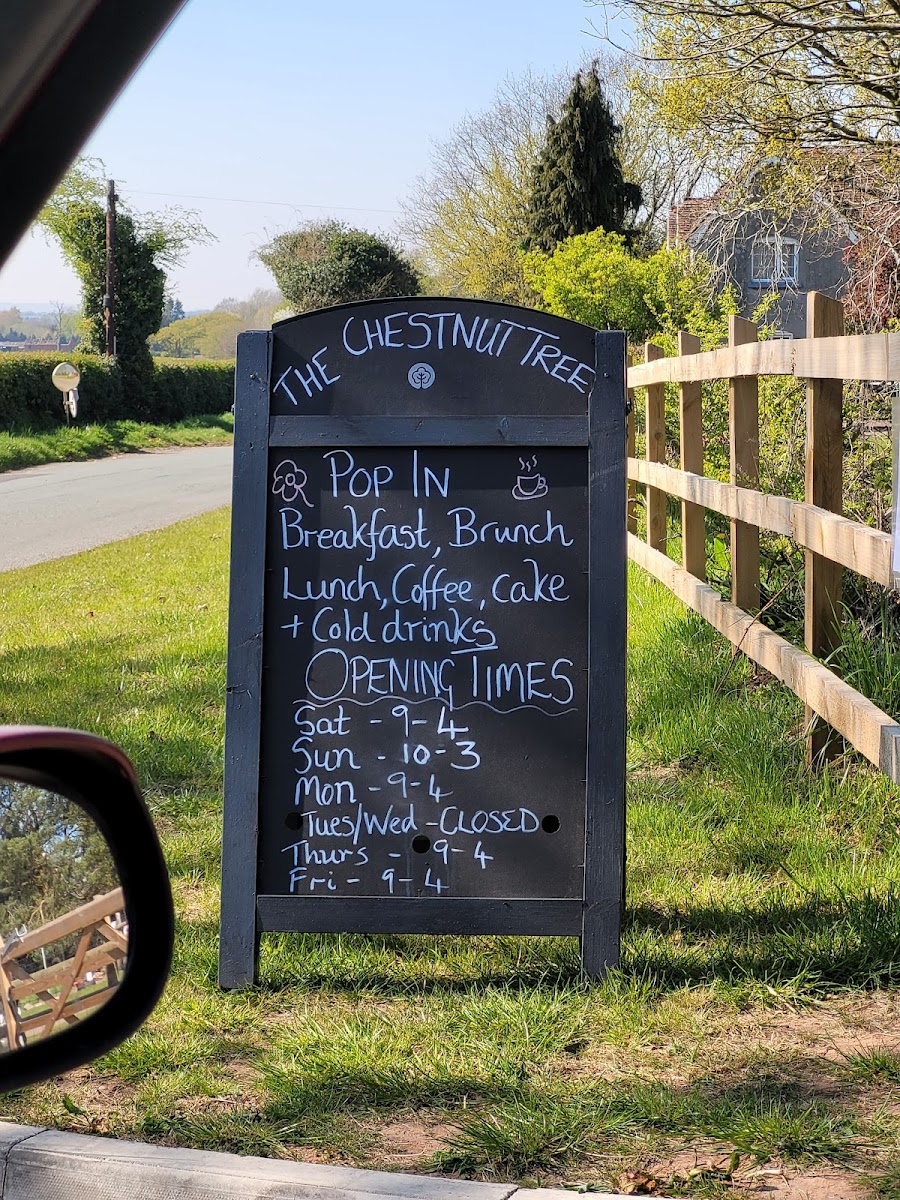 THE CHESTNUT TREE
POP IN
Breakfast, Brunch
Lunch, Coffee, cake
+ Cold drinks
OPENING TIMES
Sat - 9-4
Sun - 10-3
Mon - 9-4
Tues/Wed - CLOSED
Thurs - 9-4
Fri - 9-4